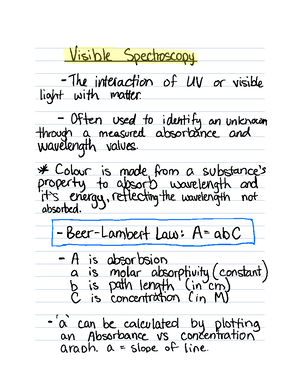 Visible Spectroscopy
- The interaction of UV or visible
light with matter.
- Often used to identify an unknown
through a measured absorbance and
wavelength values.
* Colour is made from a substance's
property to absorb wavelength and
it's energy, reflecting the wavelength not
absorbed.
- Beer-Lambert Law: A = abC
- A is absorbsion
a is molar absorptivity (constant)
b is path length (in cm)
C is concentration (in M)
- 'a' can be calculated by plotting
an Absorbance vs concentration
graph. a = slope of line.